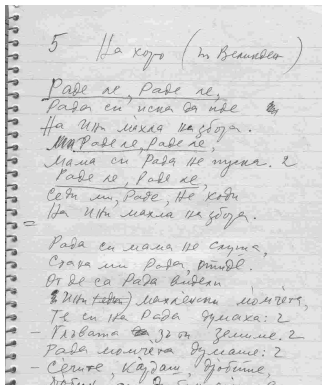 5 На хоро (на Великден)
Раде ле, Раде ле,
Рада си иска да иде
На              махла на збора.
Раде ле, Раде ле,
Мама си Рада не пуска. 2
Раде ле, Раде ле,
Седи ми, Раде, не ходи
На              махла на збора.
=
Рада си мама не слуша,
Стана ми Рада, отиде.
От де са Рада видели
махленски момчета,
Те си на Рада думаха: 2
– Главата              зъти земиме. 2
Рада момчета думаше: 2
– Сечите, кардаш, дробите,